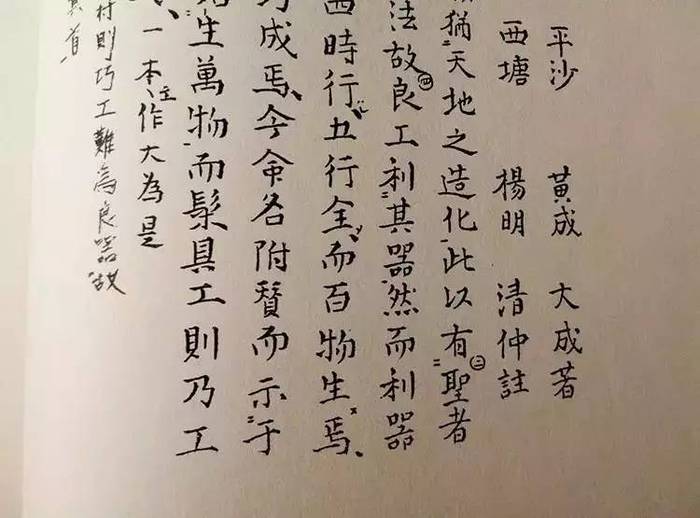 平沙 黃成 大成著
西塘 楊明 清仲註
猶天地之造化此以有㊂聖者
法故㊃良工利其器然而利器
四時行五行全而百物生焉
巧成焉今命各附賛而示于
生萬物而髹具工則乃工
一本作大為是
主
材則巧工難為良器故
其首